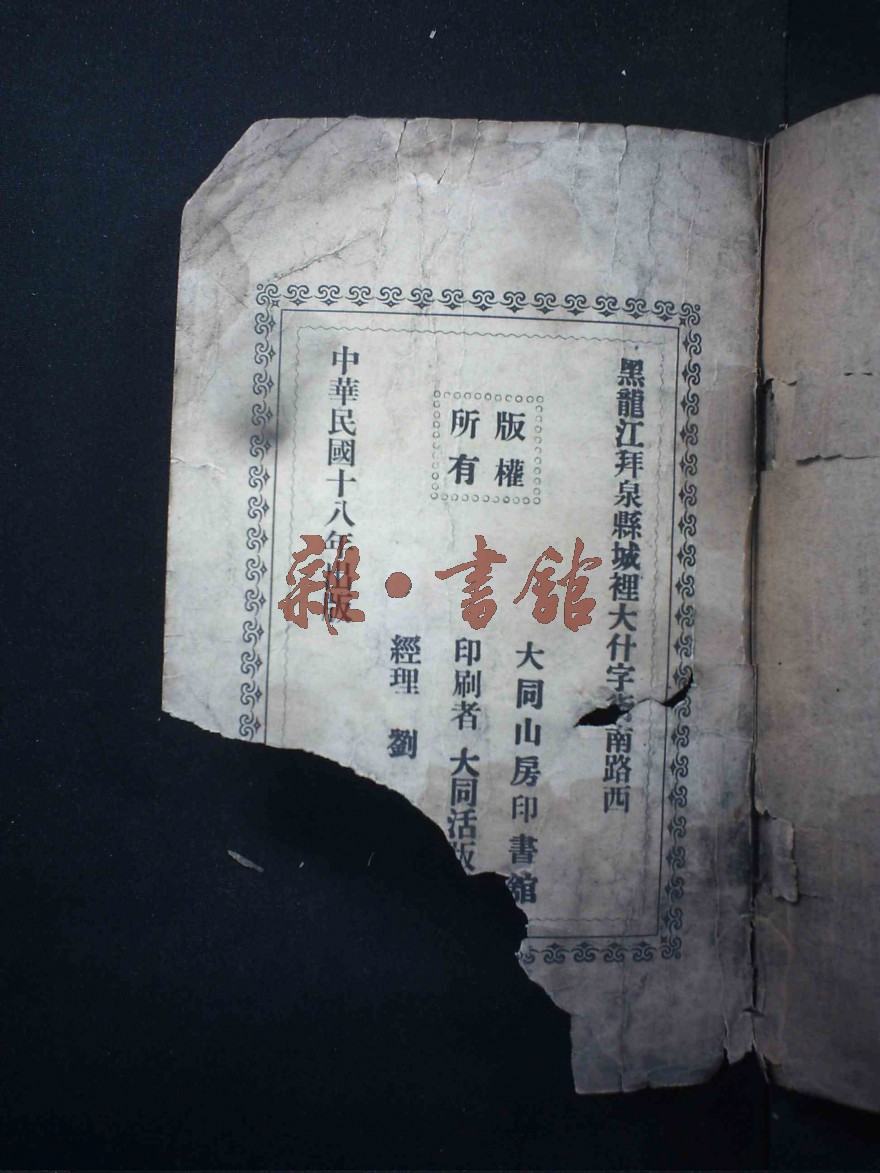 黑龍江拜泉縣城裡大什字街南路西
版權
所有
大同山房印書館
印刷者 大同活版
經理 劉
中華民國十八年出版
雜·書館